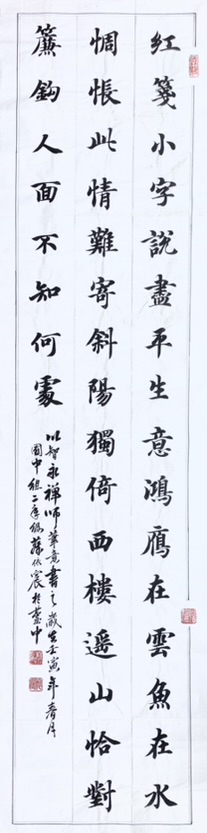 紅箋小字說盡平生意鴻鴈在雲魚在水
惆悵此情難寄斜陽獨倚西樓遥山恰對
簾鈎人面不知何處
以智永禪師筆意書之歲在壬寅年春月
國中組二年